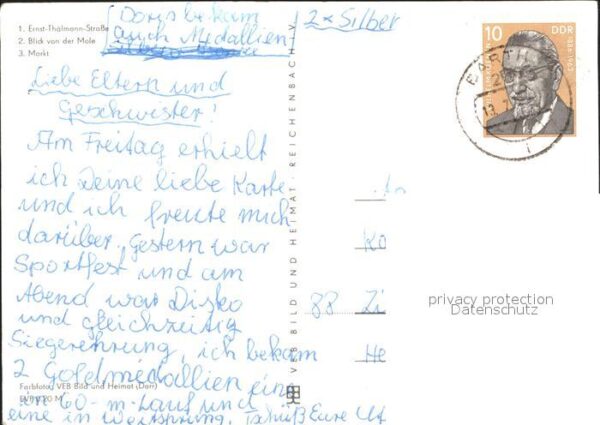 1. Ernst-Thälmann-Straße
2. Blick von der Mole
3. Markt
Doris bekam
auch Medallien
2 x Silber
Liebe Eltern und
Geschwister!
Am Freitag erhielt
ich Deine liebe Karte
und ich freute mich
darüber. Gestern war
Sportfest und am
Abend war Disko
und gleichzeitig
Siegerehrung, ich bekam
2 Goldmedallien ein
en 60-m-Lauf und
eine in Weitsprung. Tschüß Eure
Farbfoto: VEB Bild und Heimat (Darr)
EVP 0,20 M
VEB BILD UND HEIMAT REICHENBACH i. V.
10 DDR
BARTH
13.7
An
Ko
88 Zi
He
privacy protection
Datenschutz